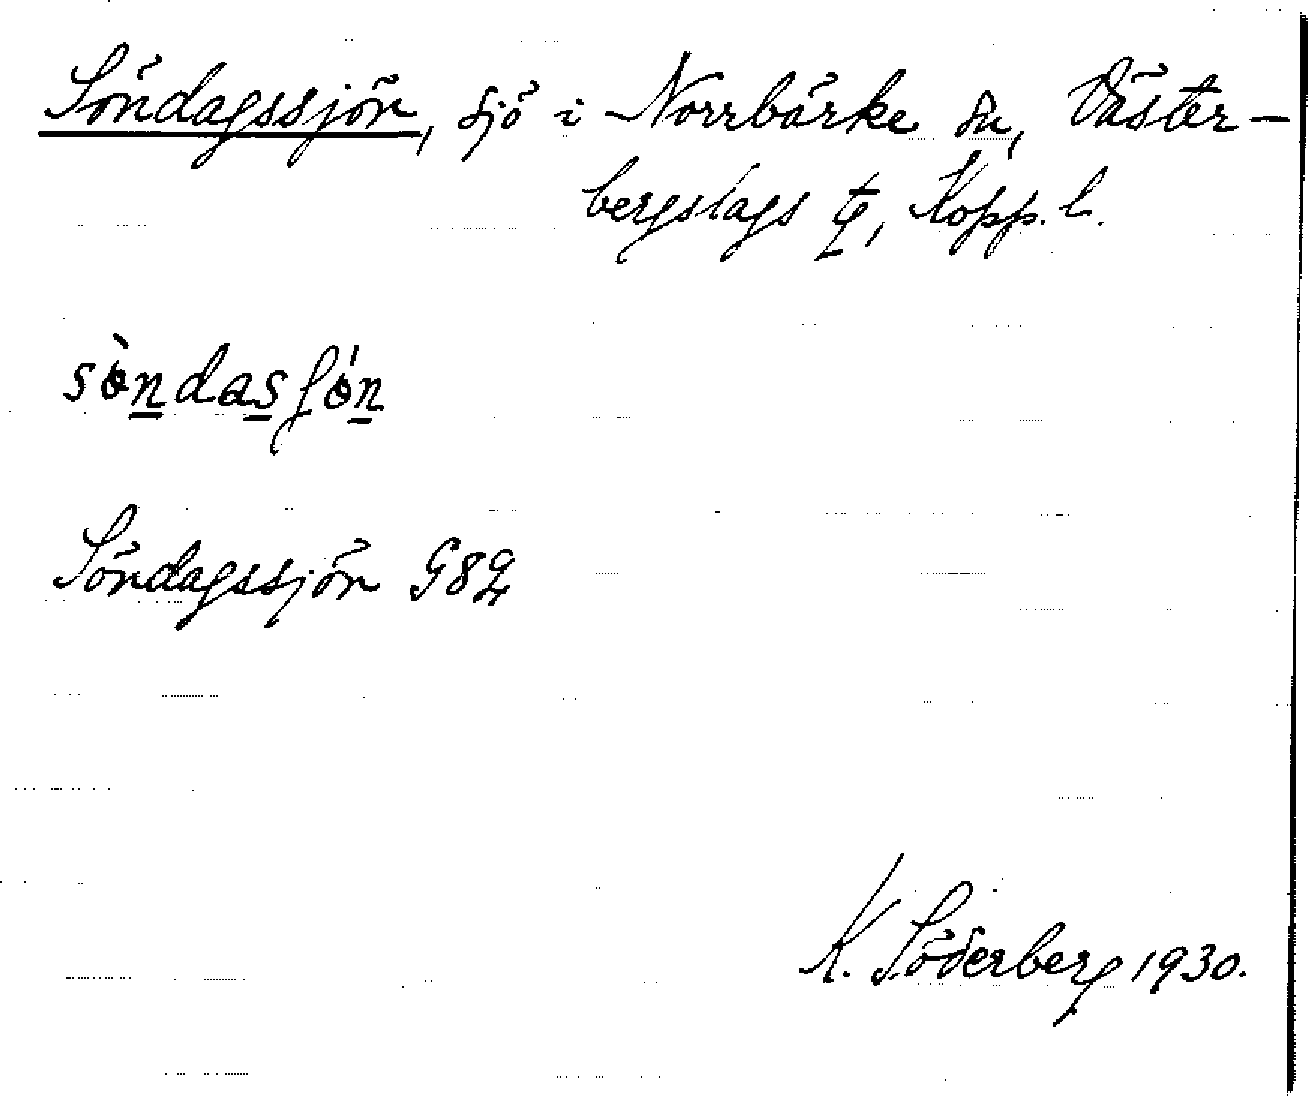 Söndagssjön, sjö i Norrbärke sn, Väster-
bergslags tg, Kopp. l.
sòndasʃón
Söndagssjön G82
K. Söderberg 1930.